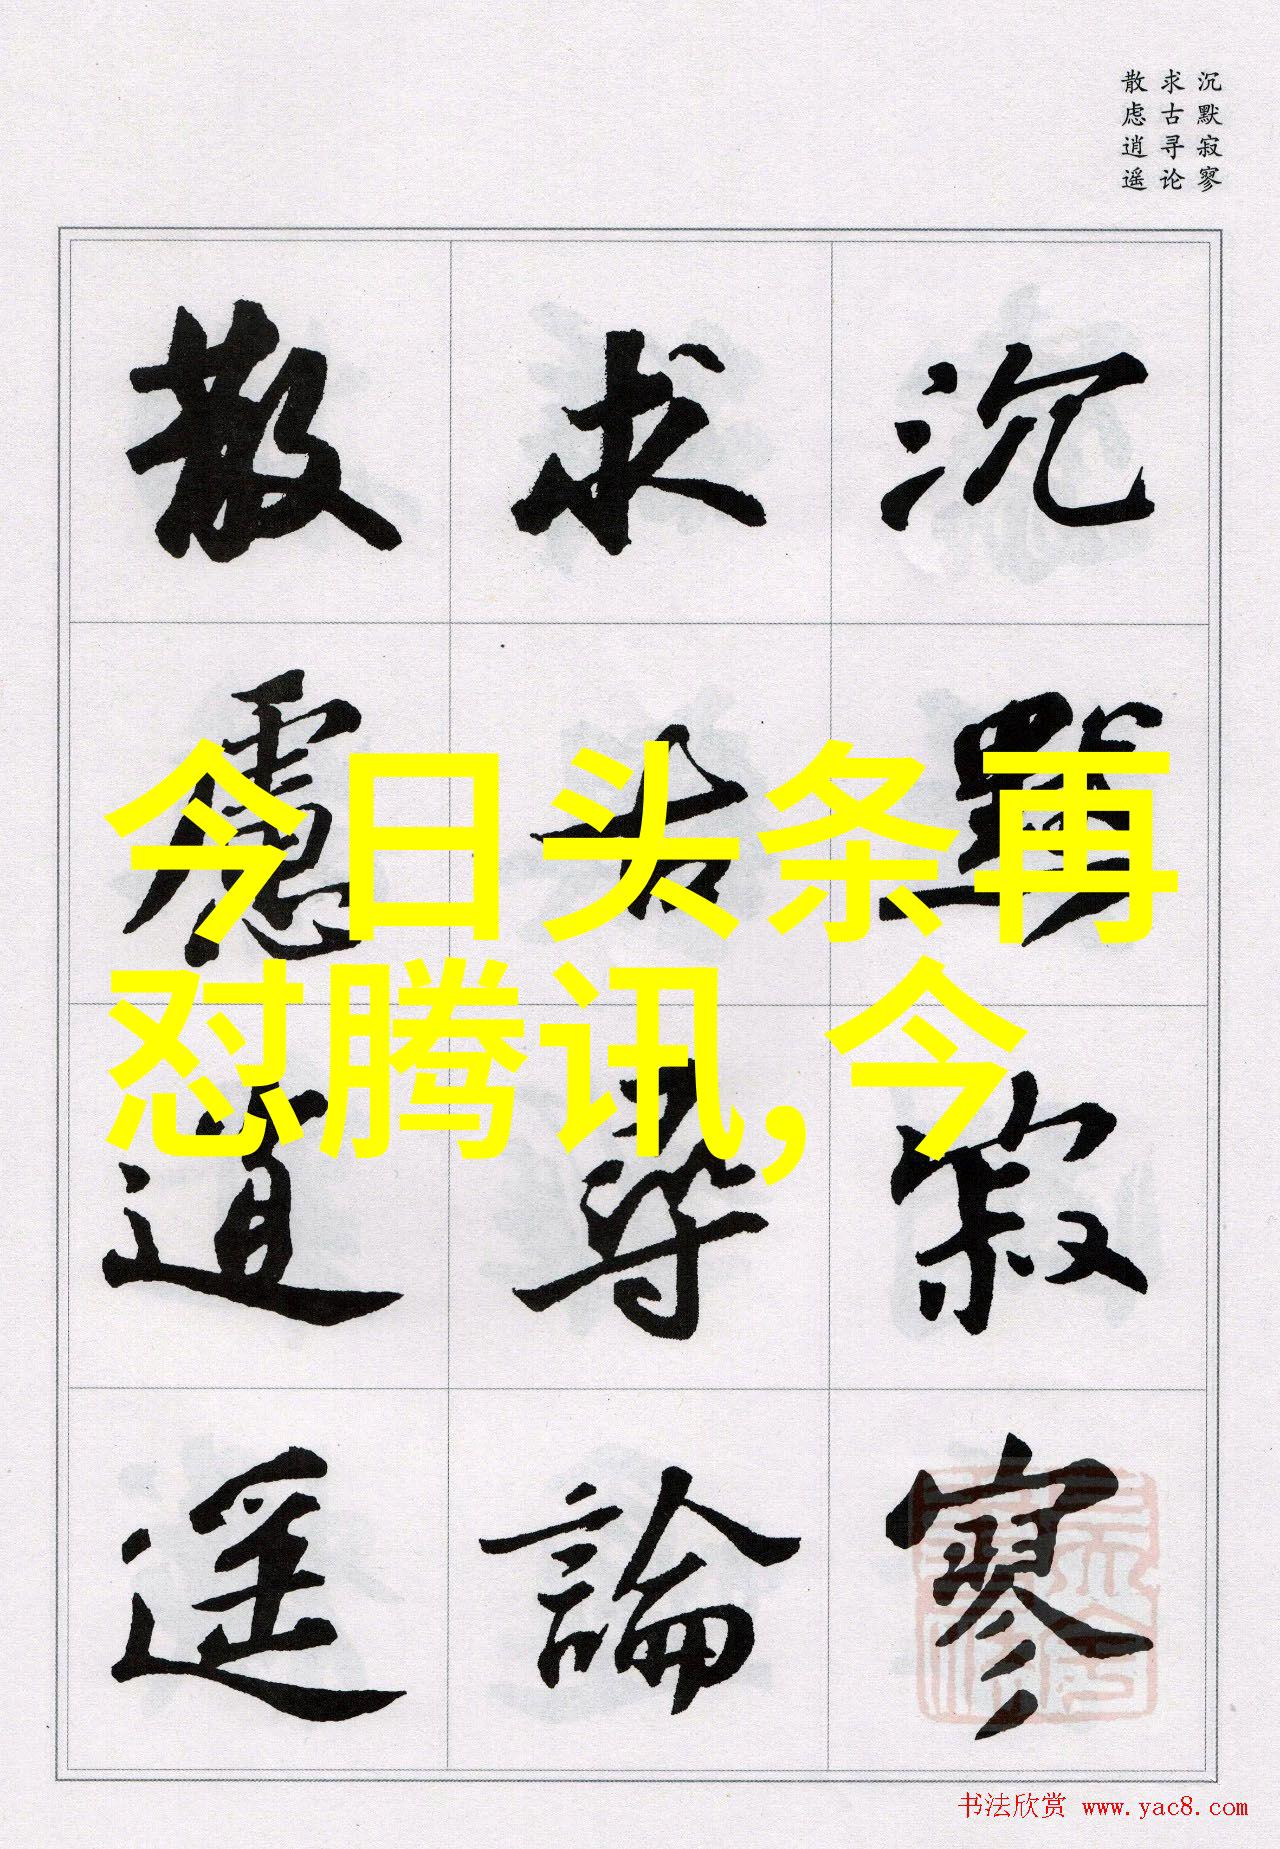 沉默寂寥
求古寻论
散虑逍遥
沉默寂寥
求古尋論
散慮逍遥
今日头条再
怼腾讯,今
书法欣赏 www.yac8.com